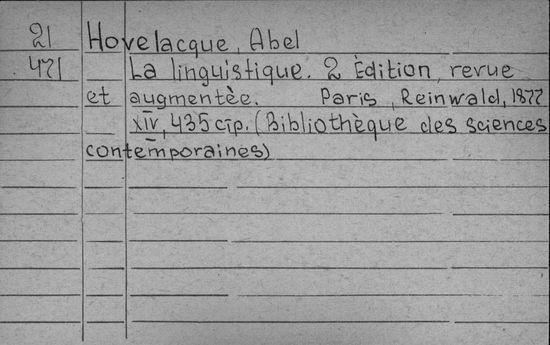 21 Hovelacque, Abel
471 La linguistique. 2 Èdition, revue
et augmentèe. Paris, Reinwald, 1877
XIV, 435 cтp. (Bibliothèque des sciences
contemporaines)